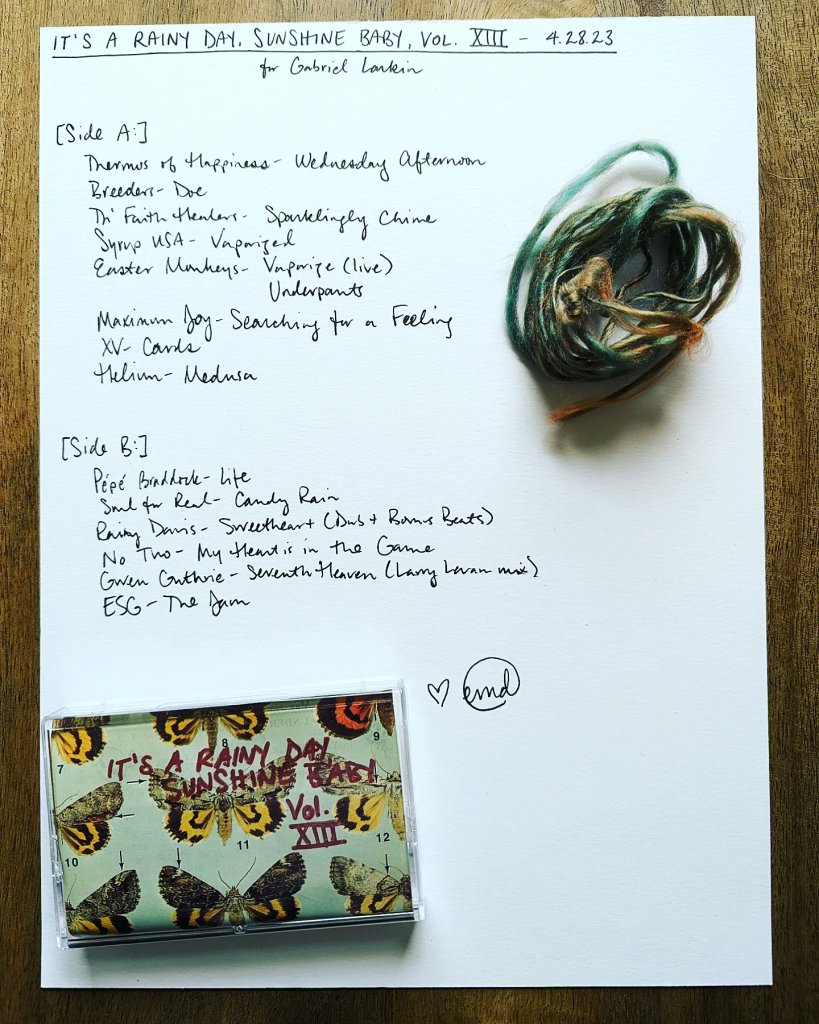 IT'S A RAINY DAY, SUNSHINE BABY, VOL. XIII - 4.28.23
for Gabriel Larkin
[Side A:]
Thermos of Happiness - Wednesday Afternoon
Breeders - Doe
Th' Faith Healers - Sparklingly Chime
Syrup USA - Vaporized
Easter Monkeys - Vaporize (live)
Underpants
Maximum Joy - Searching for a Feeling
XV - Cards
Helium - Medusa
[Side B:]
Pépé Braddock - Life
Soul for Real - Candy Rain
Rainy Davis - Sweetheart (Dub + Bonus Beats)
No Two - My Heart is in the Game
Gwen Guthrie - Seventh Heaven (Larry Levan mix)
ESG - The Dam
♡ emd
7
8
9
IT'S A RAINY DAY
SUNSHINE BABY
Vol.
XIII
10
11
12